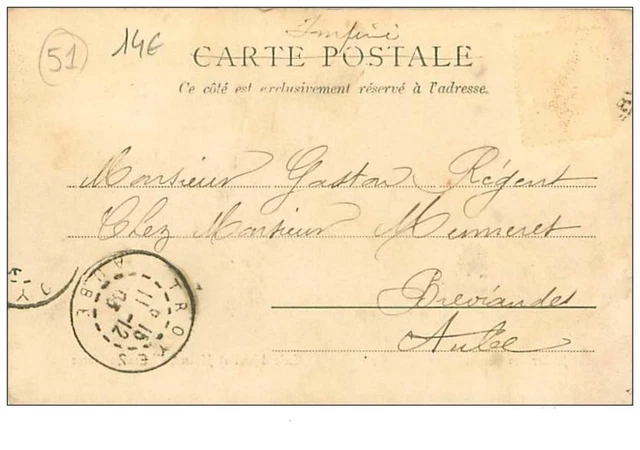 51
14€
Imprimé
CARTE POSTALE
Ce côté est exclusivement réservé à l'adresse.
Monsieur Gaston Régent
Chez Monsieur
Breviandes
Aube
TROYES
AUBE
11 E
16 -12
03